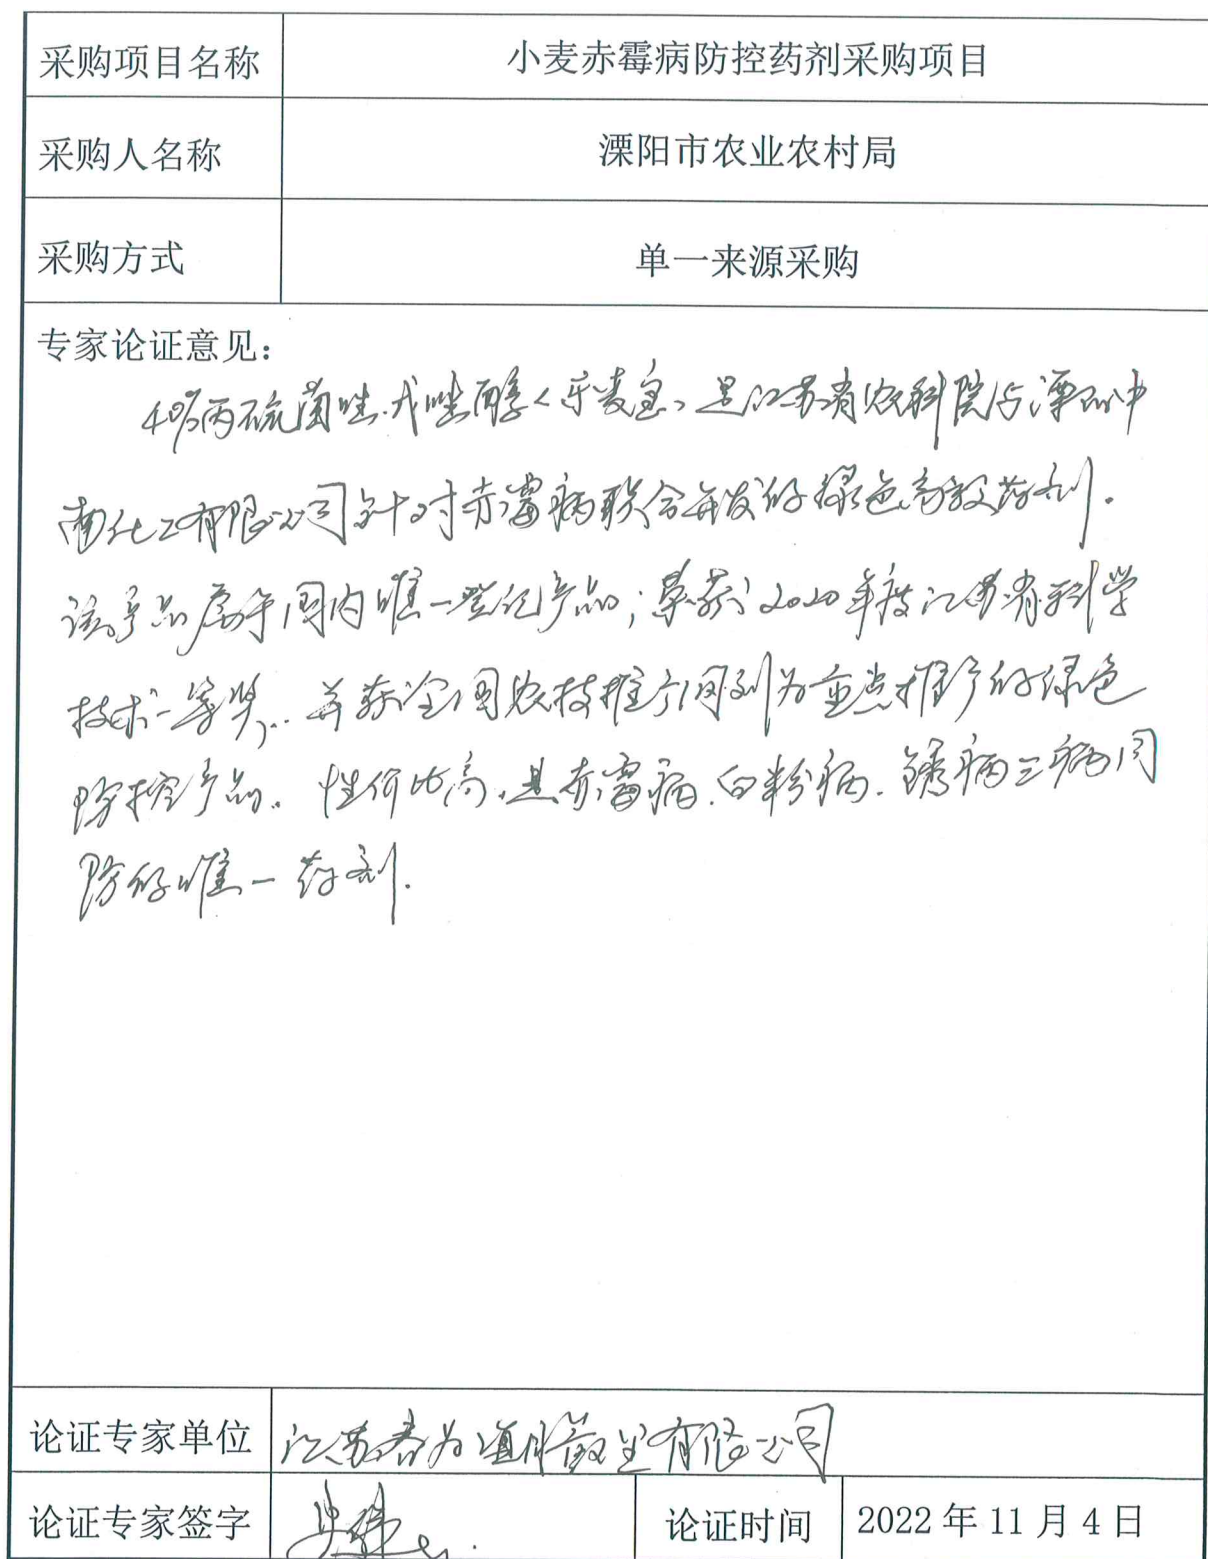 采购项目名称 小麦赤霉病防控药剂采购项目
采购人名称 溧阳市农业农村局
采购方式 单一来源采购
专家论证意见：
40%丙硫菌唑·戊唑醇 是江苏省农科院与溧阳中
南化工有限公司针对赤霉病联合开发的绿色高效药剂。
该产品属于国内唯一登记产品；荣获2020年度江苏省科学
技术一等奖，并获全国农技推广 列为重点推广的绿色
防控产品。性价比高，是赤霉病、白粉病、锈病三病同
防的唯一药剂.
论证专家单位 江苏 有限公司
论证专家签字 论证时间 2022年11月4日